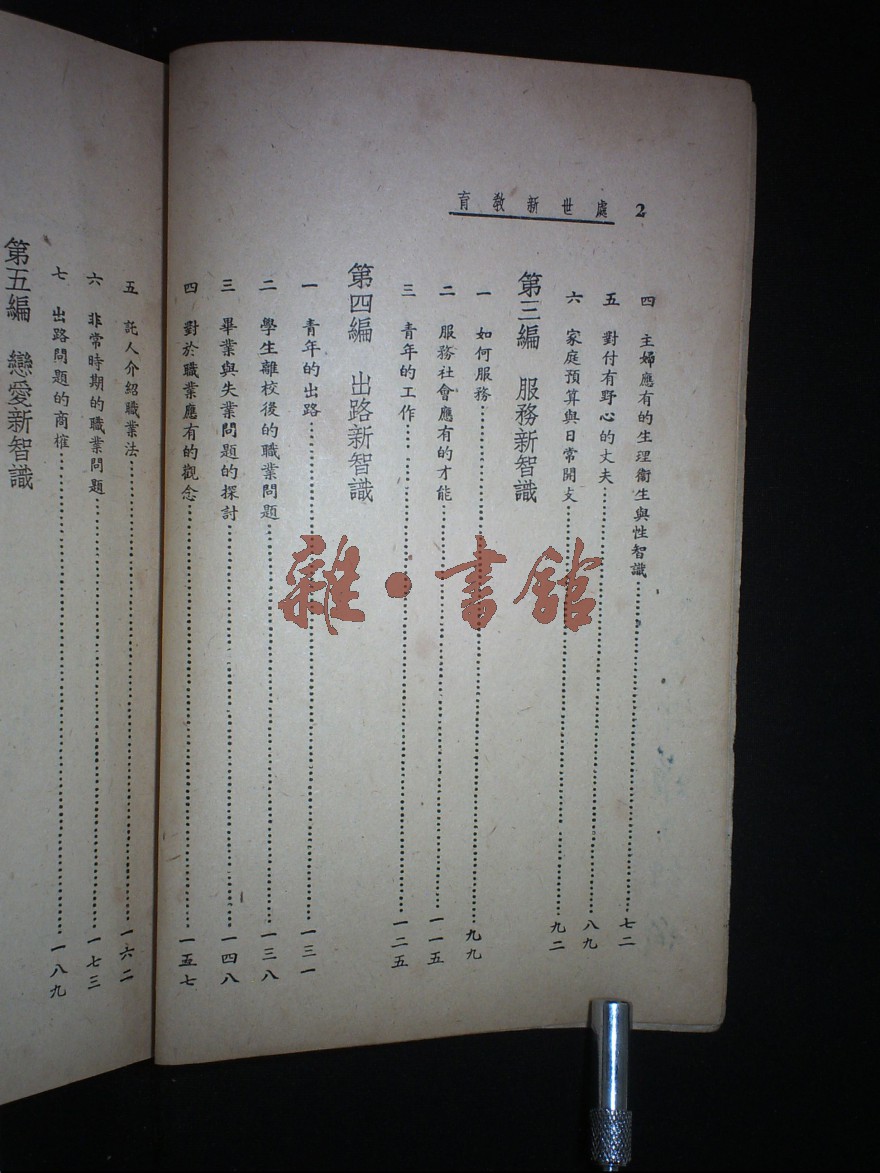 2 處世新教育
四 主婦應有的生理衞生與性智識……七二
五 對付有野心的丈夫……八九
六 家庭預算與日常開支……九二
第三編 服務新智識
一 如何服務……九九
二 服務社會應有的才能……一一五
三 青年的工作……一二五
第四編 出路新智識
一 青年的出路……一三一
二 學生離校後的職業問題……一三八
三 畢業與失業問題的探討……一四八
四 對於職業應有的觀念……一五七
五 託人介紹職業法……一六二
六 非常時期的職業問題……一七三
七 出路問題的商榷……一八九
第五編 戀愛新智識
雜·書館